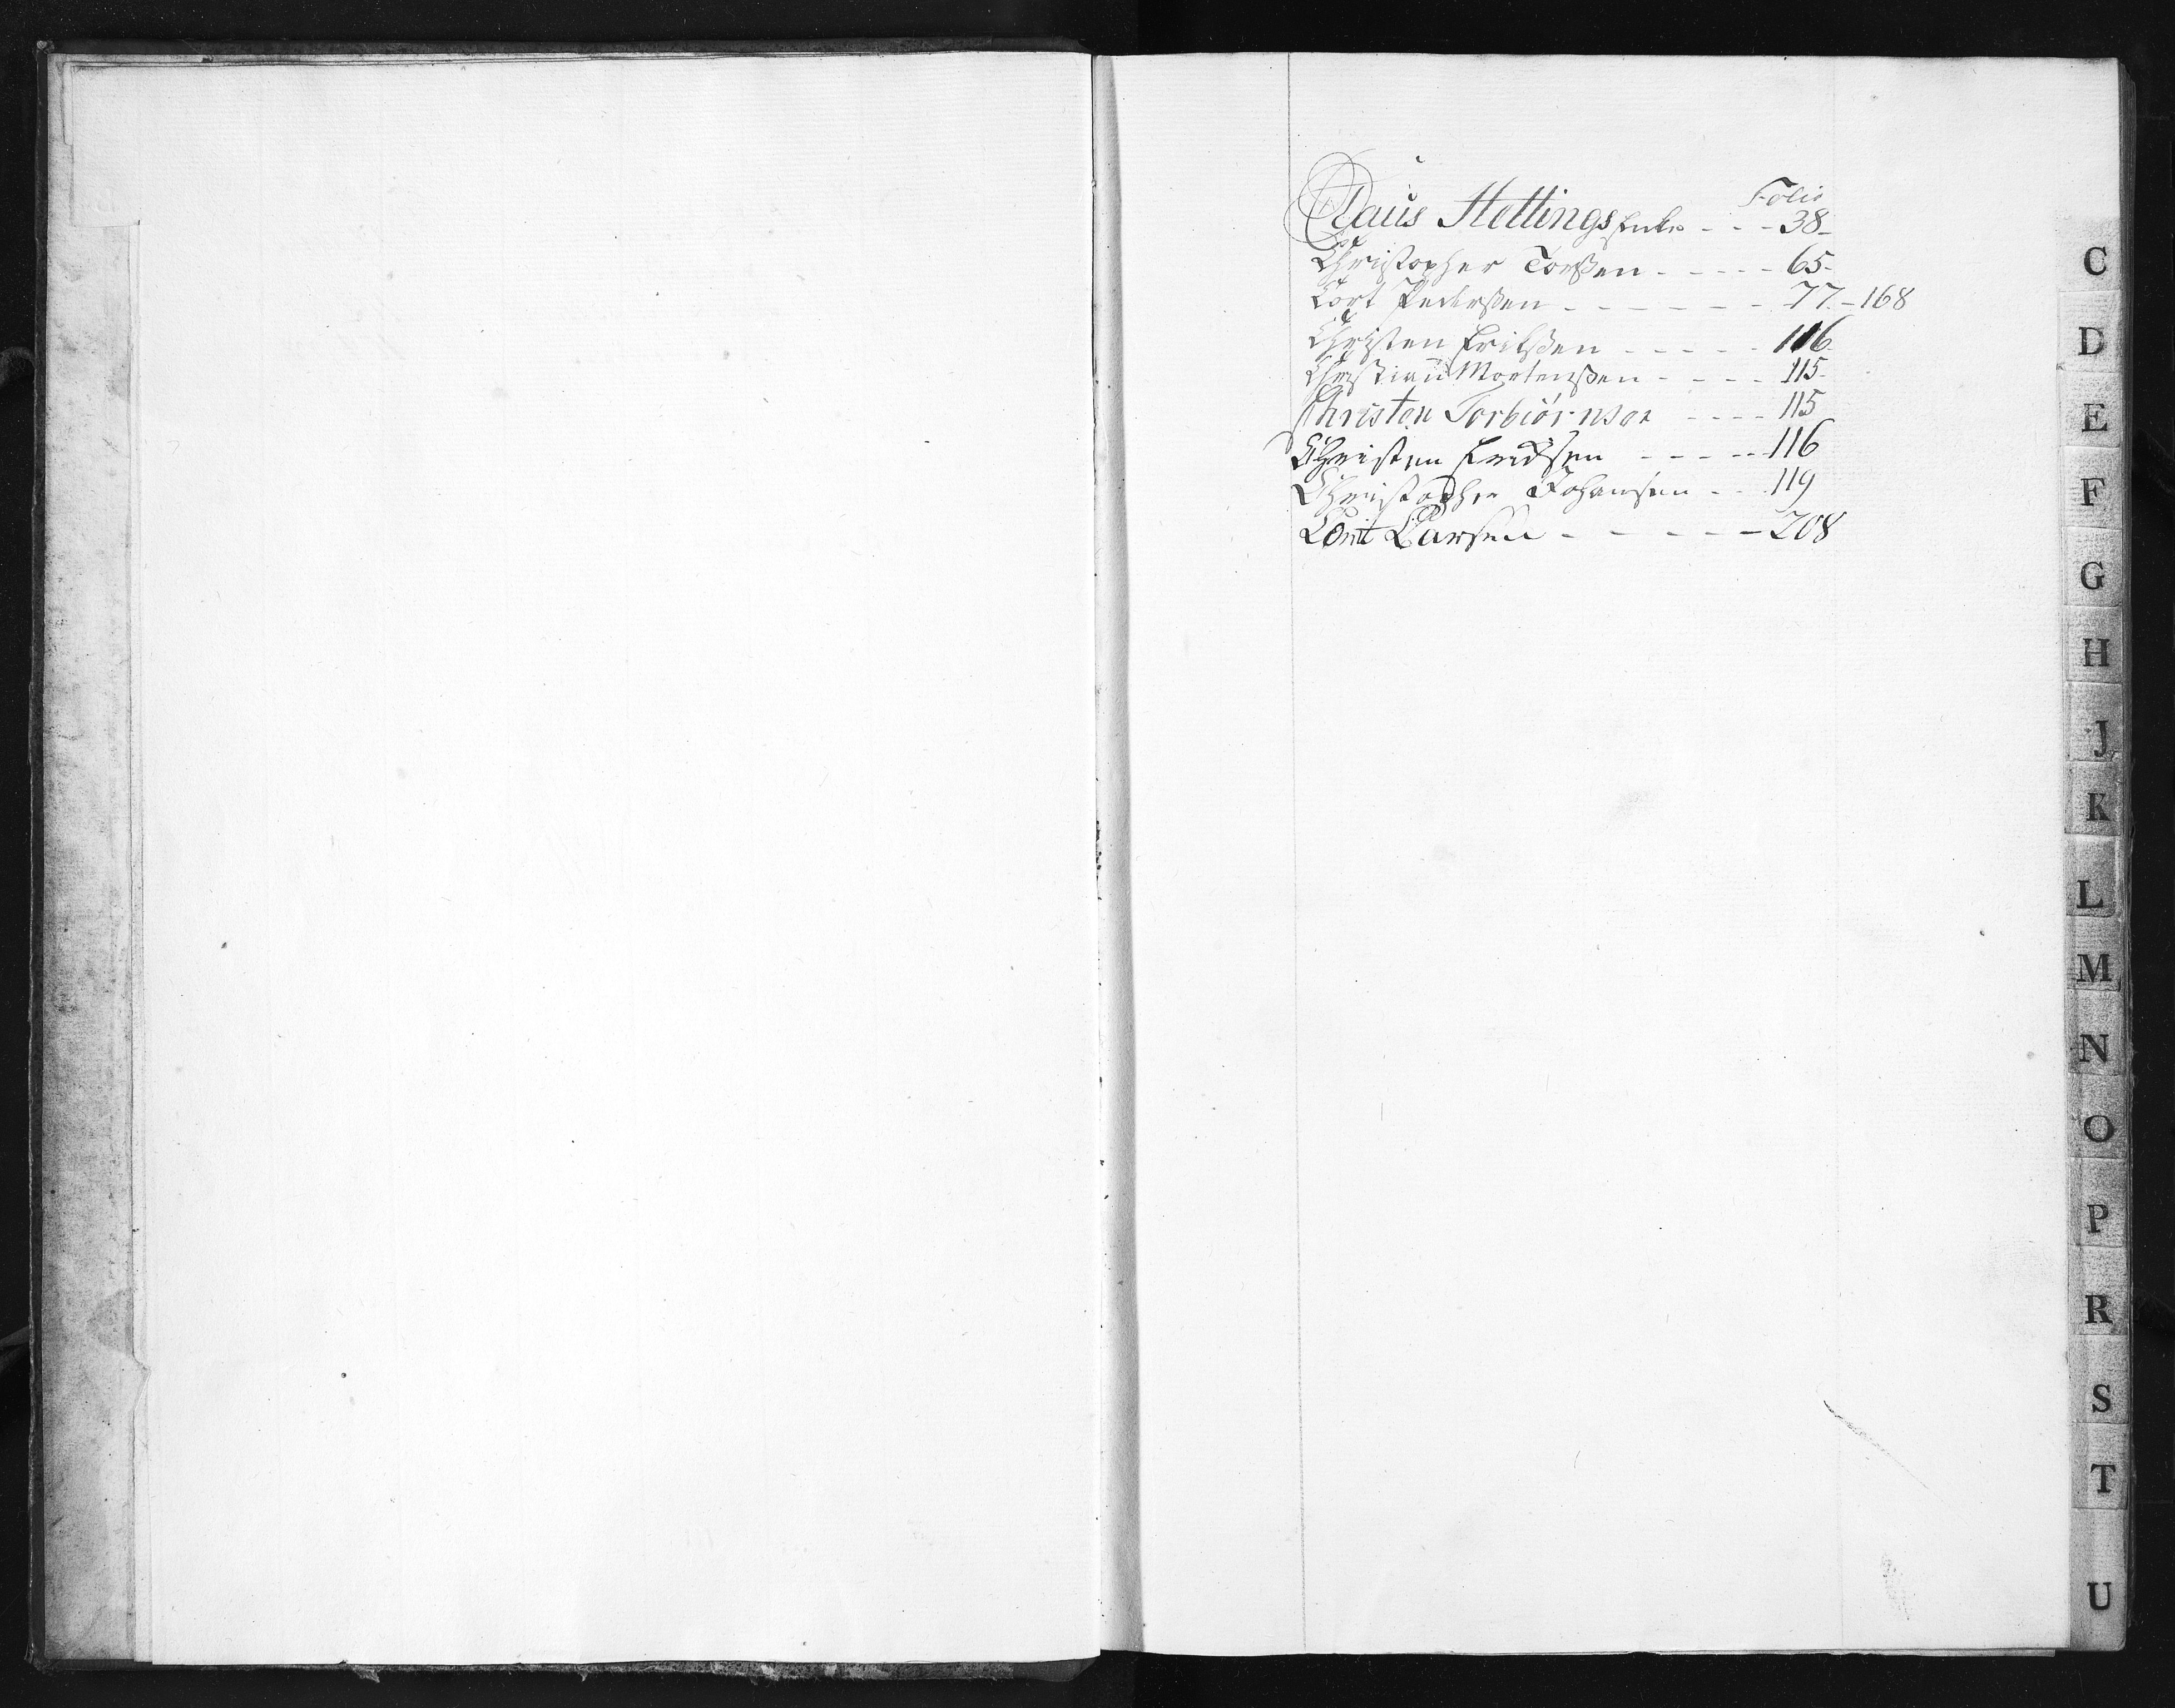 Folio
Claus Hellings Enke - - - 38-
Christopher Torßen - - - - - 65-
Cort Pederßen - - - - - - - 77-168
Christen Erikßen - - - - - 116
Christian Mortenßen - - - - 115-
Christen Torbiörnson - - - - 115
Christen Eridsen - - - - - 116
Christopher Johansen - - 119
Corit Larsen - - - - - - 208
C
D
E
F
G
H
J
K
L
M
N
O
P
R
S
T
U